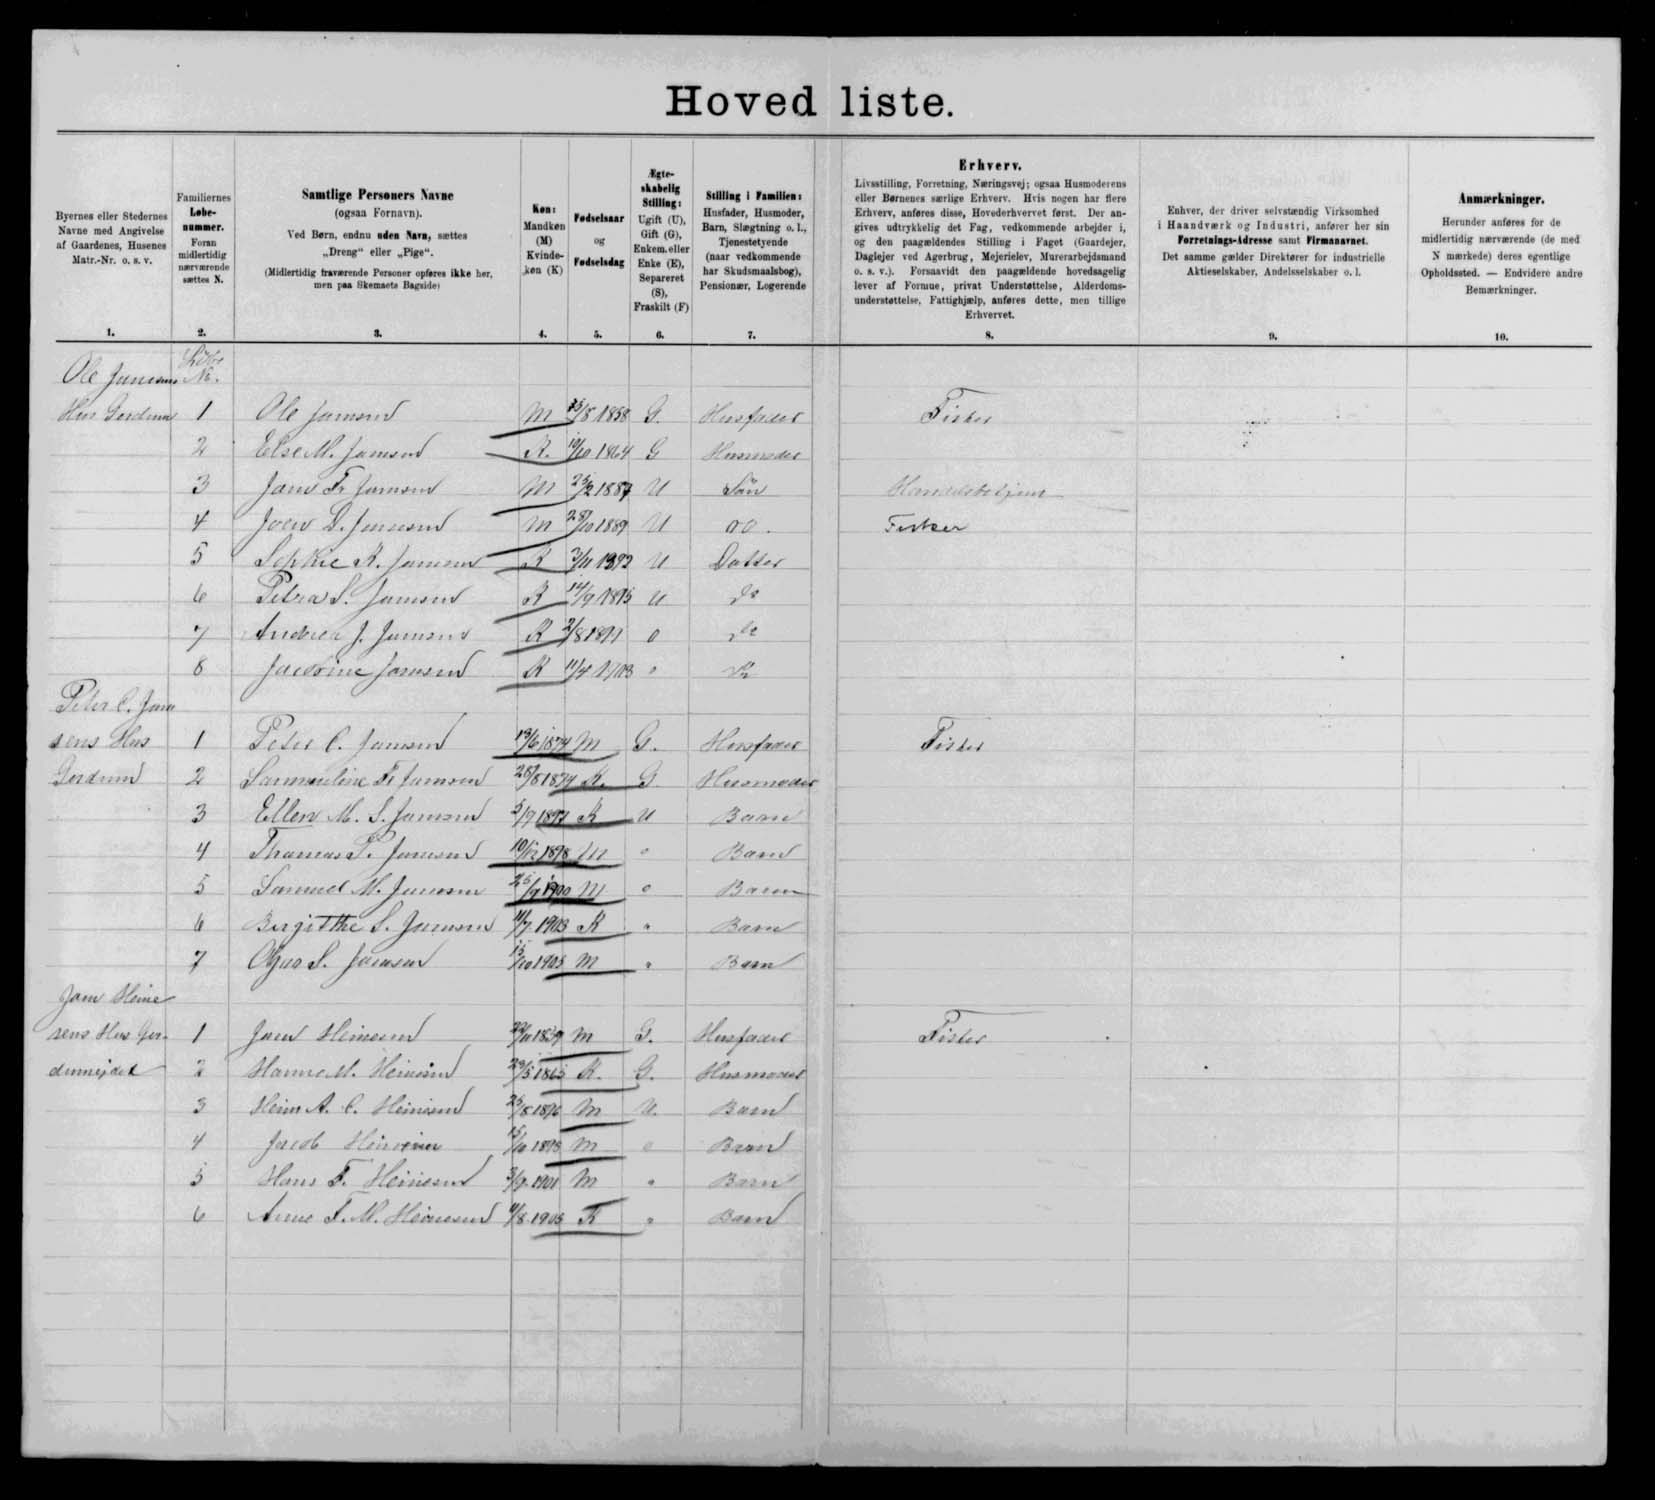 Hovedliste.
Byernes eller Stedernes Navne med Angivelse af Gaardenes, Husenes Matr.-Nr. o. s. v.
1.
Familiernes Løbe-nummer. Foran midlertidig nærværende sættes N.
2.
Samtlige Personers Navne (ogsaa Fornavn).
Ved Børn, endnu uden Navn, sættes „Dreng“ eller „Pige“.
(Midlertidig fraværende Personer opføres ikke her, men paa Skemaets Bagside)
3.
Køn: Mandkøn (M) Kvinde-køn (K)
4.
Fødselsaar og Fødselsdag
5.
Ægte-skabelig Stilling: Ugift (U), Gift (G), Enkem. eller Enke (E), Separeret (S), Fraskilt (F)
6.
Stilling i Familien: Husfader, Husmoder, Barn, Slægtning o. l., Tjenestetyende (naar vedkommende har Skudsmaalsbog), Pensionær, Logerende
7.
Erhverv.
Livsstilling, Forretning, Næringsvej; ogsaa Husmoderens eller Børnenes særlige Erhverv. Hvis nogen har flere Erhverv, anføres disse, Hovederhvervet først. Der angives udtrykkelig det Fag, vedkommende arbejder i, og den paagældendes Stilling i Faget (Gaardejer, Daglejer ved Agerbrug, Mejerielev, Murerarbejdsmand o. s. v.). Forsaavidt den paagældende hovedsagelig lever af Formue, privat Understøttelse, Alderdomsunderstøttelse, Fattighjælp, anføres dette, men tillige Erhvervet.
8.
Enhver, der driver selvstændig Virksomhed i Haandværk og Industri, anfører her sin Forretnings-Adresse samt Firmanavnet. Det samme gælder Direktører for industrielle Aktieselskaber, Andelsselskaber o. l.
9.
Anmærkninger.
Herunder anføres for de midlertidig nærværende (de med N mærkede) deres egentlige Opholdssted. — Endvidere andre Bemærkninger.
10.
Ole Jamsens No.
Hus 1 Ole Jamsen M 1858 G. Husfader Fisker
2 Else M. Jamsen K. 19/10 1864 G Husmoder
3 Jam Fr Jamsen M 1887 U Søn
4 Joen D. Jamsen M 28/10 1889 U do. Fisker
5 Sophie K. Jamsen K 3/11 1892 U Datter
6 Petra S. Jamsen K 14/9 1895 U do
7 Andrea J. Jamsen K 2/8 U do
8 Jacobine Jamsen K 11/4 " do
Peter C. Jam
sens Hus 1 Peter C. Jamsen 1874 M G. Husfader Fisker
2 Fr Jamsen 28/8 1874 K. G. Husmoder
3 Ellen M. S. Jamsen 1897 K U Barn
4 Thomas P. Jamsen 10/12 1898 M " Barn
5 Samuel M. Jamsen 25/9 1900 M " Barn
6 Birgitthe S. Jamsen 11/7 1903 K " Barn
7 S. Jamsen 15/10 1905 M " Barn
Jam Heine
sens Hus 1 Jam Heinesen 1839 M G. Husfader Fisker
2 Hanne M. Heinesen 1865 K. G. Husmoder
3 Hein A. C. Heinesen 25/8 1896 M U. Barn
4 Jacob Heinesen 15/10 1898 M " Barn
5 Hans F. Heinesen 3/9 1901 M " Barn
6 Anne F. M. Heinesen 11/8 1905 K " Barn